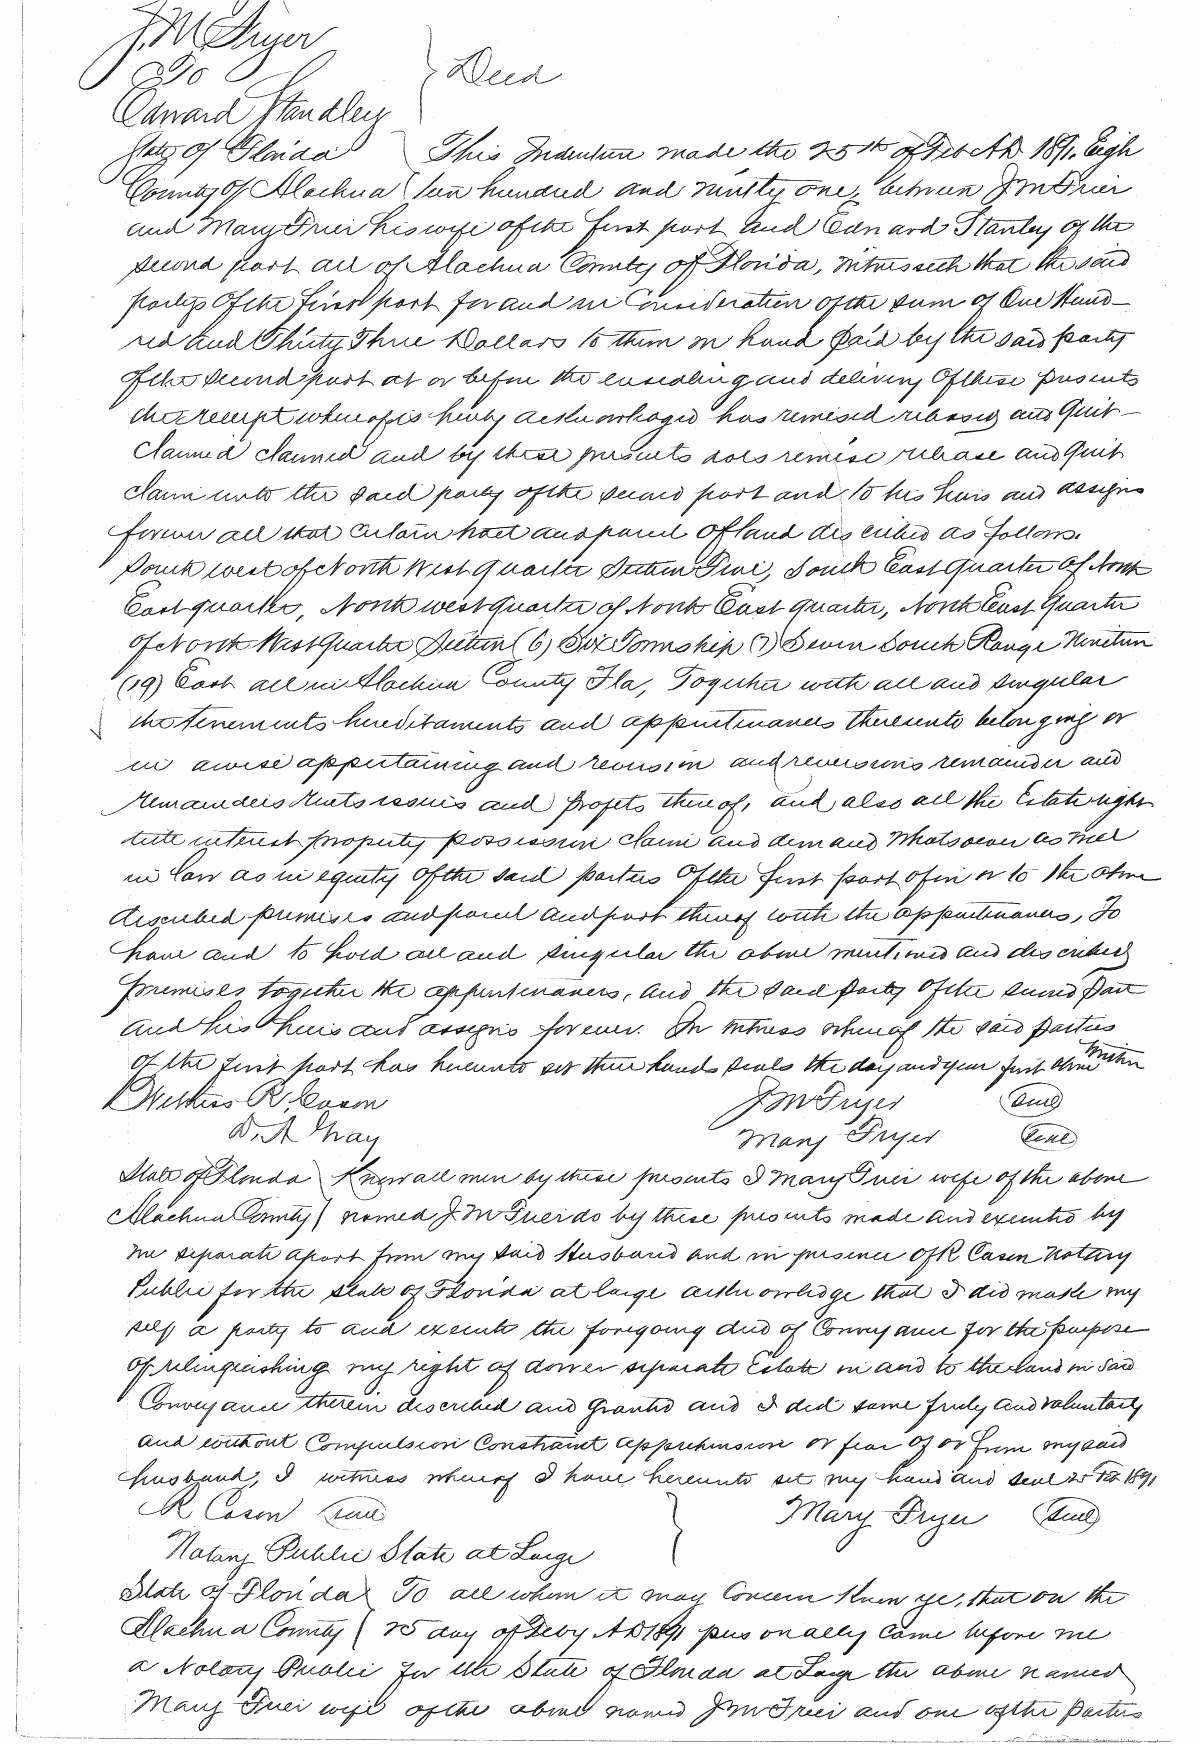 J. M Fryer
To } Deed
Edward Standley
State of Florida ) This Indenture made the 25th of Feb AD. 1891. Eigh
County Of Alachua ( teen hundred and ninety one, between J M Frier
and Mary Frier his wife of the first part and Edward Stanley of the
second part all of Alachua County of Florida, witnesseth that the said
partys Of the first part for and in Consideration of the sum of One Hund-
red and Thirty Three Dollars to them in hand paid by the said party
of the second part at or before the ensealing and delivery Of these presents
the receipt whereof is hereby acknowledged has remised released and Quit-
claimed claimed and by these presents does remise release and Quit
claim unto the said party of the second part and to his heirs and assigns
forever all that certain tract and parcel of land discribed as follows.
South west of North West quarter Section Five, South East quarter of North
East quarter, North west quarter of North East quarter, North East Quarter
of North West Quarter Section (6) Six Township (7) Seven South Range Nineteen
(19) East all in Alachua County Fla, Together with all and singular
the tenements hereditaments and appurtenances thereunto belonging or
in awise appertaining and revision and reversions remainder and
remainders rents issues and profets thereof, and also all the Estate right
title interest property possession claim and demand whatsoever as well
in law as in equity of the said parties Of the first part of in or to the above
described premises and parcel and part thereof with the appurtenances, To
have and to hold all and singular the above mentioned and described
premises together the appurtenances, and the said Party Of the second Part
and his heirs and assigns forever. In witness whereof the said parties
of the first part has hereunto set there hands seals the day and year first above written
Witness R. Cason J M Fryer (Seal)
D. A Gray Mary Fryer (Seal)
State of Florida ) Know all men by these presents I Mary Frier wife of the above
Alachua County ( named J. M Frier do by these presents made and executed by
me separate apart from my said Husband and in presence of R Cason Notary
Public for the state of Florida at large acknowledge that I did make my
self a party to and execute the foregoing deed of Conveyance for the purpose
of relinquishing my right of dower separate Estate in and to the land in said
Conveyance therein described and granted and I did same fruly and voluntarily
and without Compulsion Constraint apprehension or fear of or from my said
husband, I witness whereof I have hereunto set my hand and seal 25 Feb 1891
R Cason (seal) Mary Fryer (Seal)
Notary Public State at Large
State of Florida ) To all whom it may Concern Know ye, that on the
Alachua County ( 25 day of Feby AD 1891 personally came before me
a Notary Public for the State of Florida at Large the above named
Mary Frier wife of the above named J M Frier and one of the Parties